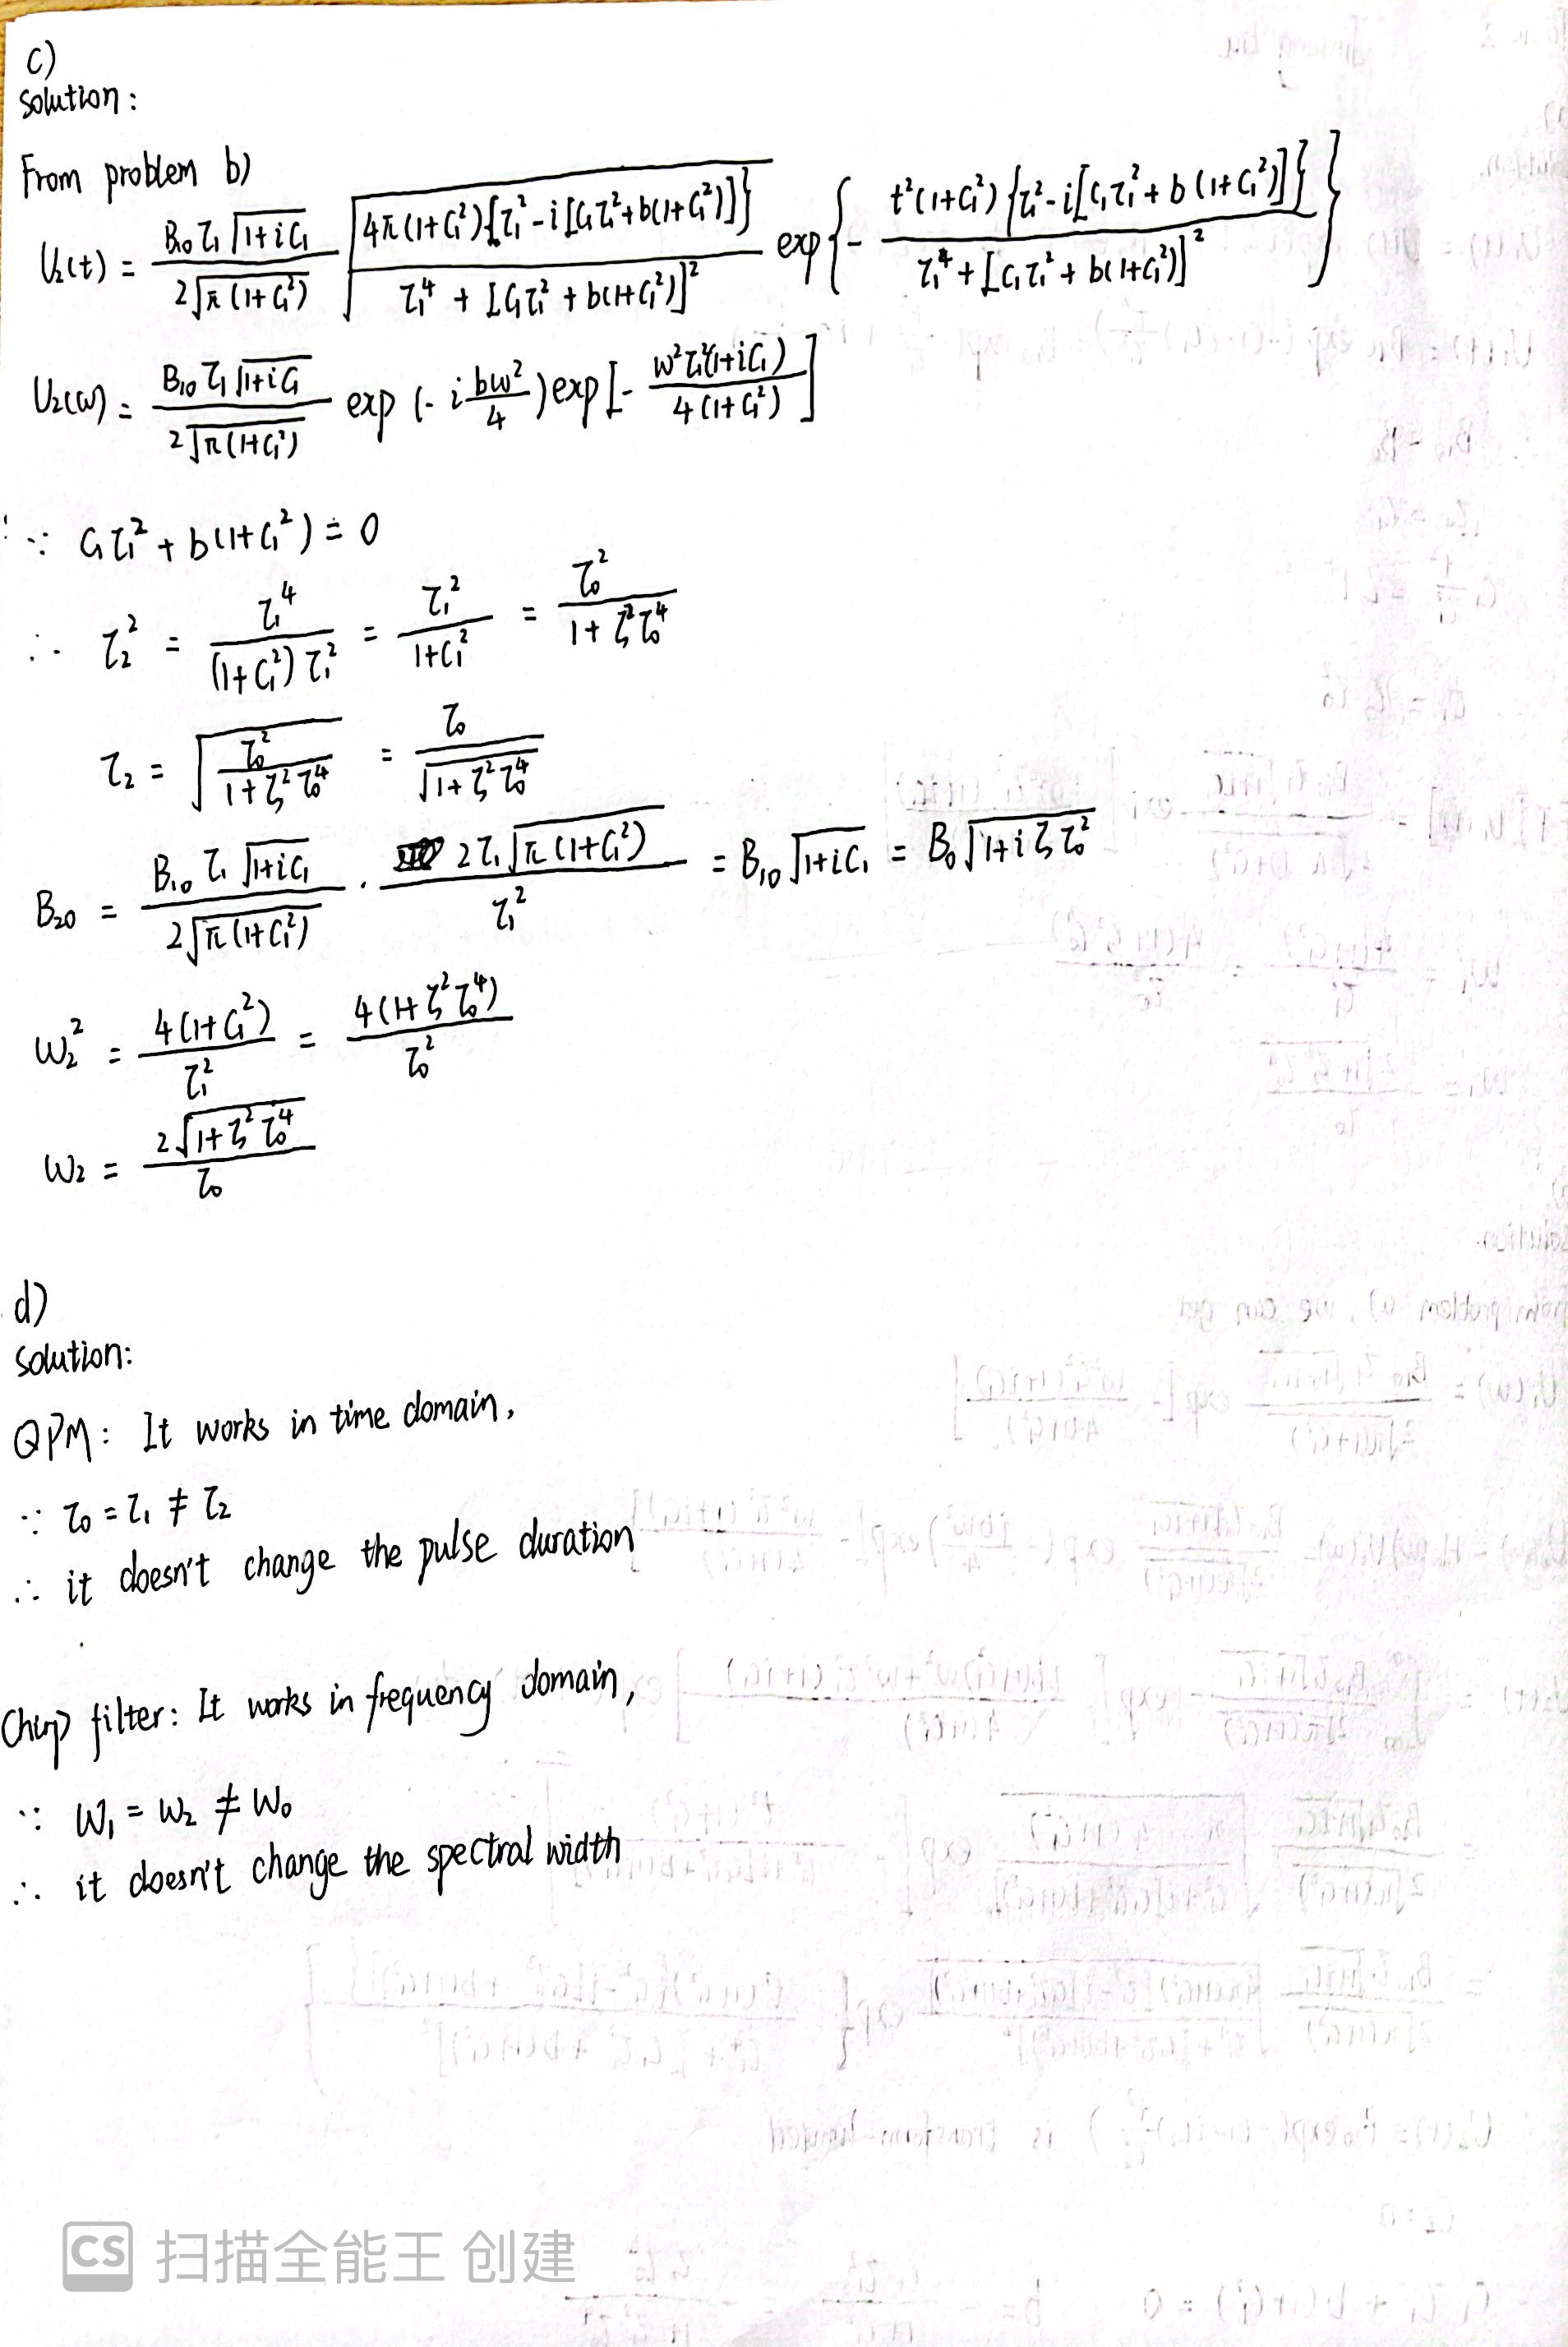 c)
Solution:
From problem b)
U₂(t) = B₁₀ τ₁ √(1+iC₁) / 2√(π(1+C₁²)) √(4π(1+C₁²){τ₁²-i[C₁τ₁²+b(1+C₁²)]} / τ₁⁴+[C₁τ₁²+b(1+C₁²)]²) exp{- t²(1+C₁²){τ₁²-i[C₁τ₁²+b(1+C₁²)]} / τ₁⁴+[C₁τ₁²+b(1+C₁²)]²}
U₂(ω) = B₁₀ τ₁ √(1+iC₁) / 2√(π(1+C₁²)) exp(-i bω²/4) exp[- ω²τ₁²(1+iC₁) / 4(1+C₁²)]
∵ C₁τ₁² + b(1+C₁²) = 0
∴ τ₂² = τ₁⁴ / (1+C₁²)τ₁² = τ₁² / 1+C₁² = τ₀² / 1+ζ²τ₀⁴
τ₂ = √(τ₀² / 1+ζ²τ₀⁴) = τ₀ / √(1+ζ²τ₀⁴)
B₂₀ = B₁₀ τ₁ √(1+iC₁) / 2√(π(1+C₁²)) · 2τ₁√(π(1+C₁²)) / τ₁² = B₁₀√(1+iC₁) = B₀√(1+iζτ₀²)
W₂² = 4(1+C₁²) / τ₁² = 4(1+ζ²τ₀⁴) / τ₀²
W₂ = 2√(1+ζ²τ₀⁴) / τ₀
d)
Solution:
QPM: It works in time domain,
∵ τ₀ = τ₁ ≠ τ₂
∴ it doesn't change the pulse duration
Chirp filter: It works in frequency domain,
∵ W₁ = W₂ ≠ W₀
∴ it doesn't change the spectral width
CS 扫描全能王 创建